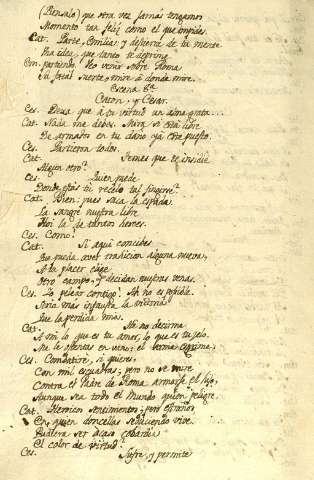 (Piensalo) que otra vez jamás tengamos
Momento tan feliz como el que impides.
Cat. Parte, Emilia, y destierra de tu mente
Esa idea, que tanto te deprime.
Em. partiendo Yo veré sobre Roma
Tu fatal suerte, mire á donde mire.
Escena 8.ª
Caton, y Cesar.
Ces. Dexa que á tu virtud un alma grata...
Cat. Nada me debes. Mira si está libre
De armados en tu daño ya este puesto.
Ces. Partieron todos.
Cat. Temes que te insidie
Algun otro?
Ces. Quien puede
Donde estás tú recelo tal fingirse?
Cat. Bien: pues saca la espada.
la sangre nuestra libre
Hoi la de tantos heroes.
Ces. Como?
Cat. Si aquí concibes
Que pueda aver trahicion alguna nueva,
A tu placer elige
Otro campo, y decidan nuestras venas.
Ces. Yo pelear contigo? Ah no es posible.
Seria mas infausta la victoria
Que la perdida mia.
Cat. Ah no decirme
A mi lo que es tu amor, lo que es tu zelo.
Me le ostentas en vano: el
Ces. Combatiré, si quieres,
Con mil esquadras; pero no se mire
Contra el Padre de Roma armarse el hijo,
Aunque sea todo el Mundo quien peligre.
Cat. Heroicos sentimentos; pero estraños
En quien doncellas seduciendo vive.
Pudiera ser acaso cobardia
El color de virtud?
Ces. Sufre, y permite